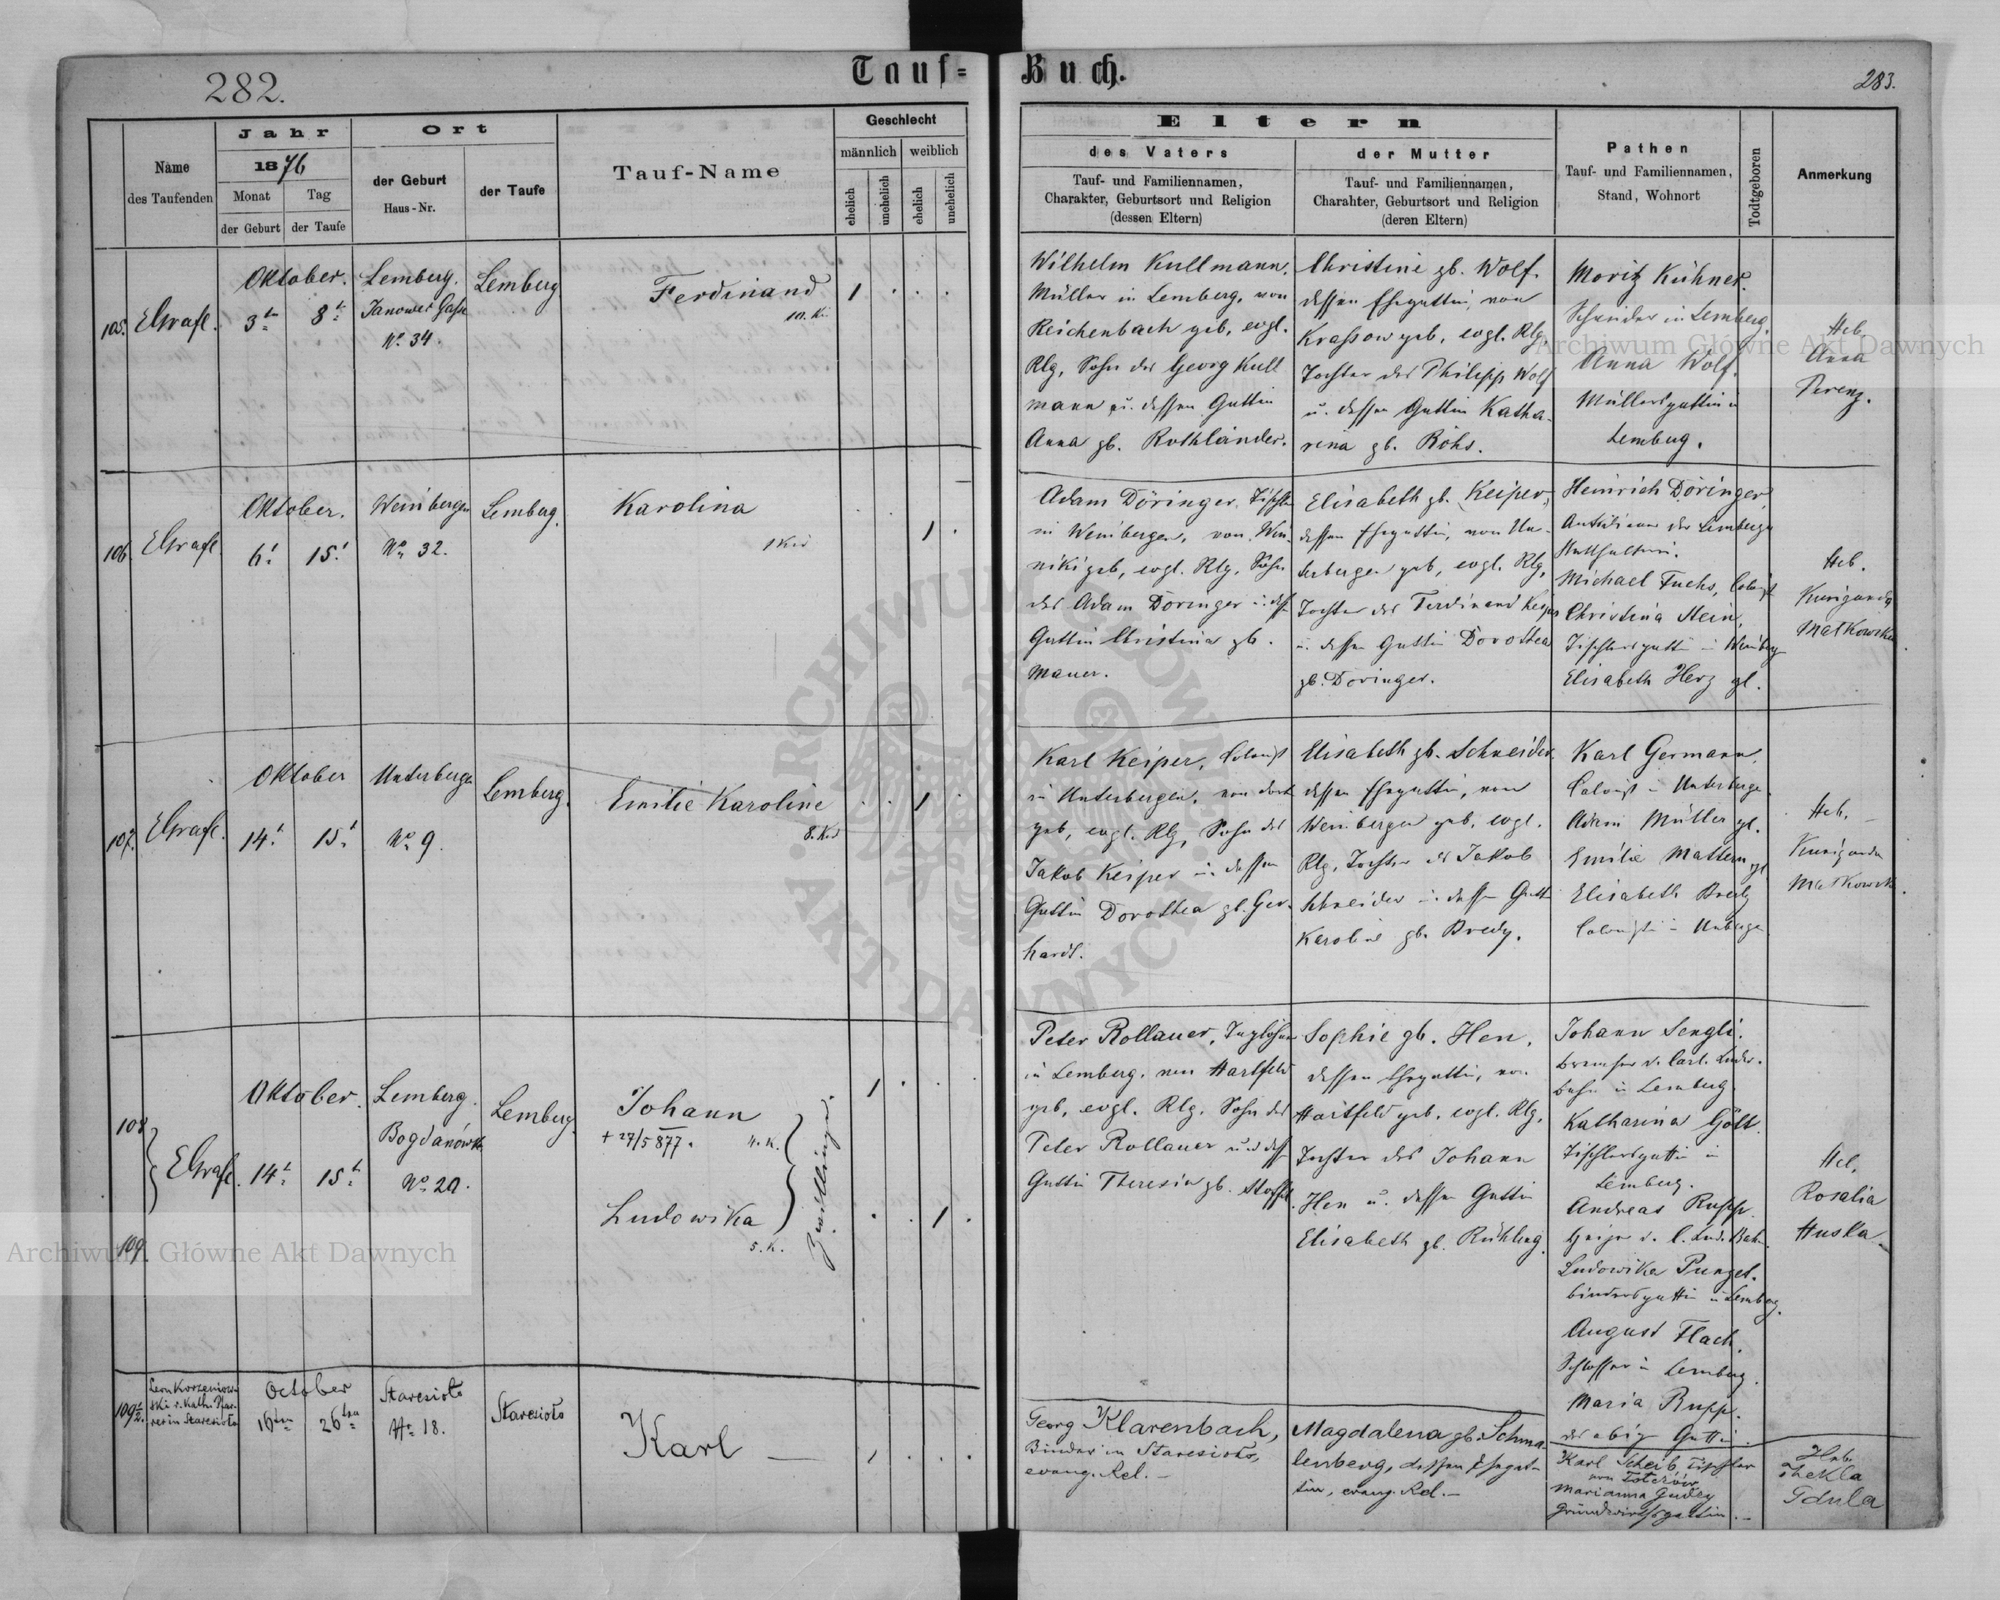 282.
Tauf-Buch.
283.
Name
des Taufenden
Jahr
1876
Monat
der Geburt
Tag
der Taufe
Ort
der Geburt
Haus-Nr.
der Taufe
Tauf-Name
Geschlecht
männlich
weiblich
ehelich
unehelich
ehelich
unehelich
Eltern
des Vaters
Tauf- und Familiennamen,
Charakter, Geburtsort und Religion
(dessen Eltern)
der Mutter
Tauf- und Familiennamen,
Charakter, Geburtsort und Religion
(deren Eltern)
Pathen
Tauf- und Familiennamen,
Stand, Wohnort
Todtgeboren
Anmerkung
105.
EGrafl.
Oktober.
3tn
8t
Lemberg.
Janower Gasse
No 34.
Lemberg
Ferdinand
1
Wilhelm Kullmann,
Müller in Lemberg, von
Reichenbach geb, evgl.
Rlg, Sohn des Georg Kull
mann u. dessen Gattin
Anna gb. Rothländer.
Christine gb. Wolf.
dessen Ehegattin, von
Krassow geb, evgl. Rlg,
Tochter des Philipp Wolf
u. dessen Gattin Katha-
rina gb. Röhs.
Moritz Kühner.
Schneider in Lemberg.
Anna Wolf.
Müllersgattin i
Lemberg.
Heb.
Anna
Perenz.
106.
EGrafl
Oktober.
6t
15t
Weinbergen
No 32.
Lemberg.
Karolina
1
Adam Döringer, Tischler
in Weinbergen, von Win-
niki geb, evgl. Rlg, Sohn
des Adam Döringer u. dess
Gattin Christina gb.
Mauer.
Elisabeth gb. Keiper,
dessen Ehegattin, von Un-
terbergen geb, evgl. Rlg,
Tochter des Ferdinand Keiper
u. dessen Gattin Dorothea
gb. Döringer.
Heinrich Döringer
der Lemberger
Statthalterei.
Michael Fuchs, Colonist
Christina Stein,
Tischlersgattin in Weinberg
Elisabeth Herz gl.
Heb.
Kunigunda
Matkowska
107.
EGrafl.
Oktober
14t
15t
Unterbergen
No 9.
Lemberg.
Emilie Karoline
1
Karl Keiper, Colonist
in Unterbergen, von dort
geb, evgl. Rlg, Sohn des
Jakob Keiper u. dessen
Gattin Dorothea gb. Ger-
hardt.
Elisabeth gb. Schneider
dessen Ehegattin, von
Weinbergen geb, evgl.
Rlg, Tochter des Jakob
Schneider u. dessen Gattin
Karoline gb. Bredy.
Karl Germann,
Colonist in Unterberge.
Adam Müller gl.
Emilie Mattern gl
Elisabeth Bredy
Heb.
Kunigunda
Matkowska.
108
109.
EGrafl.
Oktober.
14t
15t
Lemberg.
Bogdanówka
No 20.
Lemberg.
Johann
+ 27/5 877.
Ludowika
Zwillinge.
1
1
Peter Rollauer, Taglöhner
in Lemberg, von Hartfeld
geb, evgl. Rlg, Sohn des
Peter Rollauer und dess
Gattin Theresia gb. Stoffel
Sophie gb. Hen,
dessen Ehegattin, von
Hartfeld geb, evgl. Rlg,
Tochter des Johann
Hen u. dessen Gattin
Elisabeth gb. Rühling.
Johann Sengli.
Bremser d. Carl. Ludw.
Bahn in Lemberg.
Katharina Gött.
Tischlersgattin in
Lemberg.
Andreas Rupp.
Heizer d. C. Lud. Bahn.
Ludowika Punzet.
bindersgattin in Lemberg.
August Flach,
Schlosser in Lemberg.
Maria Rupp.
des obig Gattin.
Heb.
Rosalia
Huska
109½.
Leon Korzeniow-
ski r. Kath. Pfar-
rer in Staresioło
October
16ten
26ten
Staresioło
No 18.
Staresioło
Karl
1
Georg Klarenbach,
Binder in Staresioło,
evang. Rel.
Magdalena gb. Schma-
lenberg, dessen Ehegat-
tin, evang. Rel.
Karl Scheib Tischler
Marianna Gudey
Grundwirthsgattin.
Heb.
Thekla
Gdula
Archiwum Główne Akt Dawnych
Archiwum Główne Akt Dawnych
ARCHIWUM GŁÓWNE AKT DAWNYCH